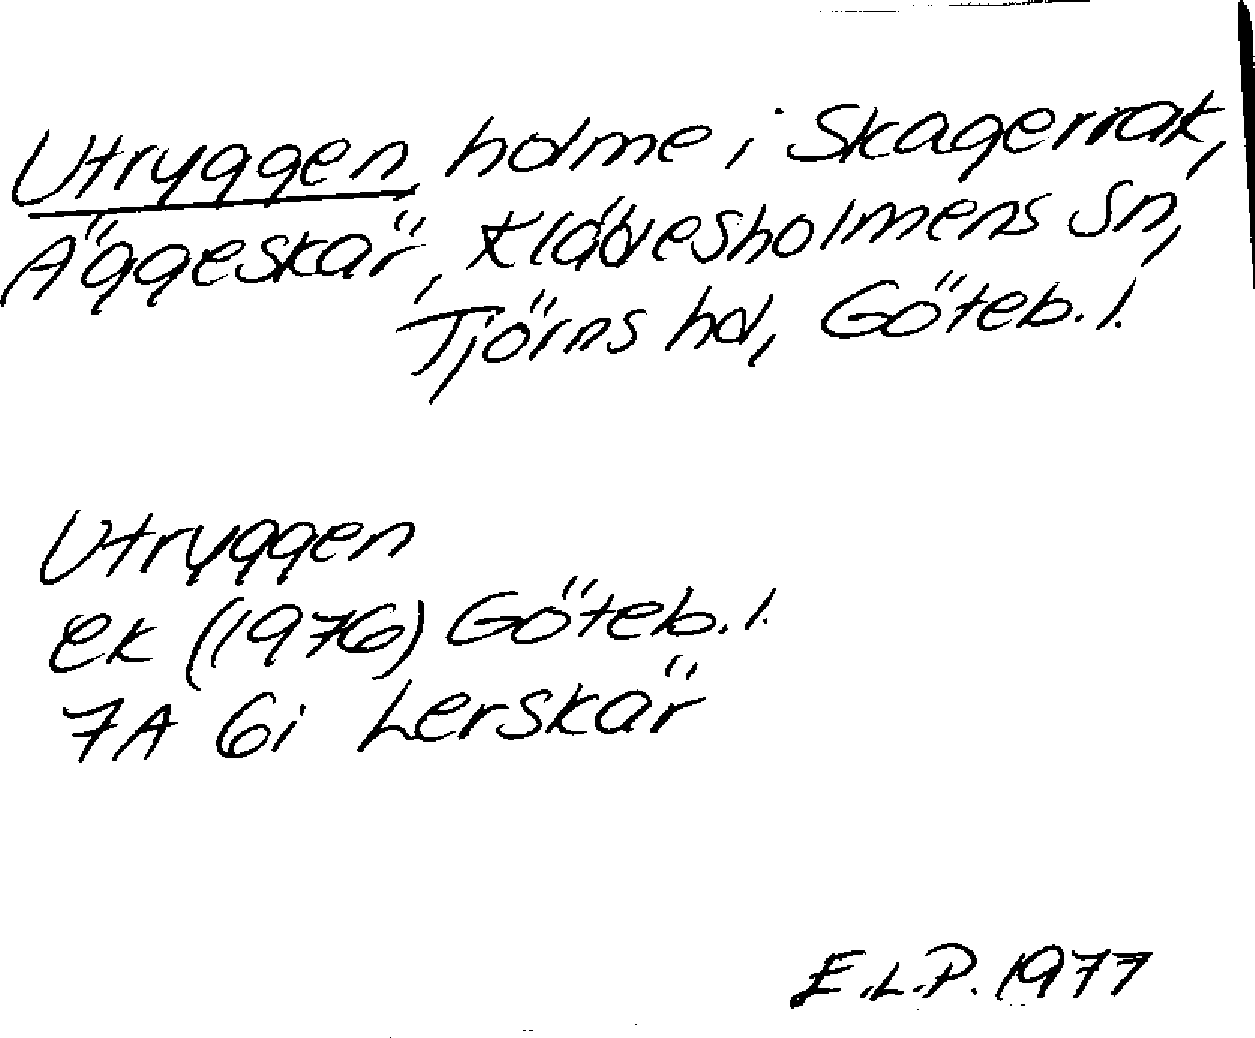 Utryggen, holme i Skagerrak,
Äggeskär, Klädesholmens sn,
Tjörns hd, Göteb. l.
Utryggen
ek (1976) Göteb. l.
7A 6i Lerskär
E.L.P. 1977